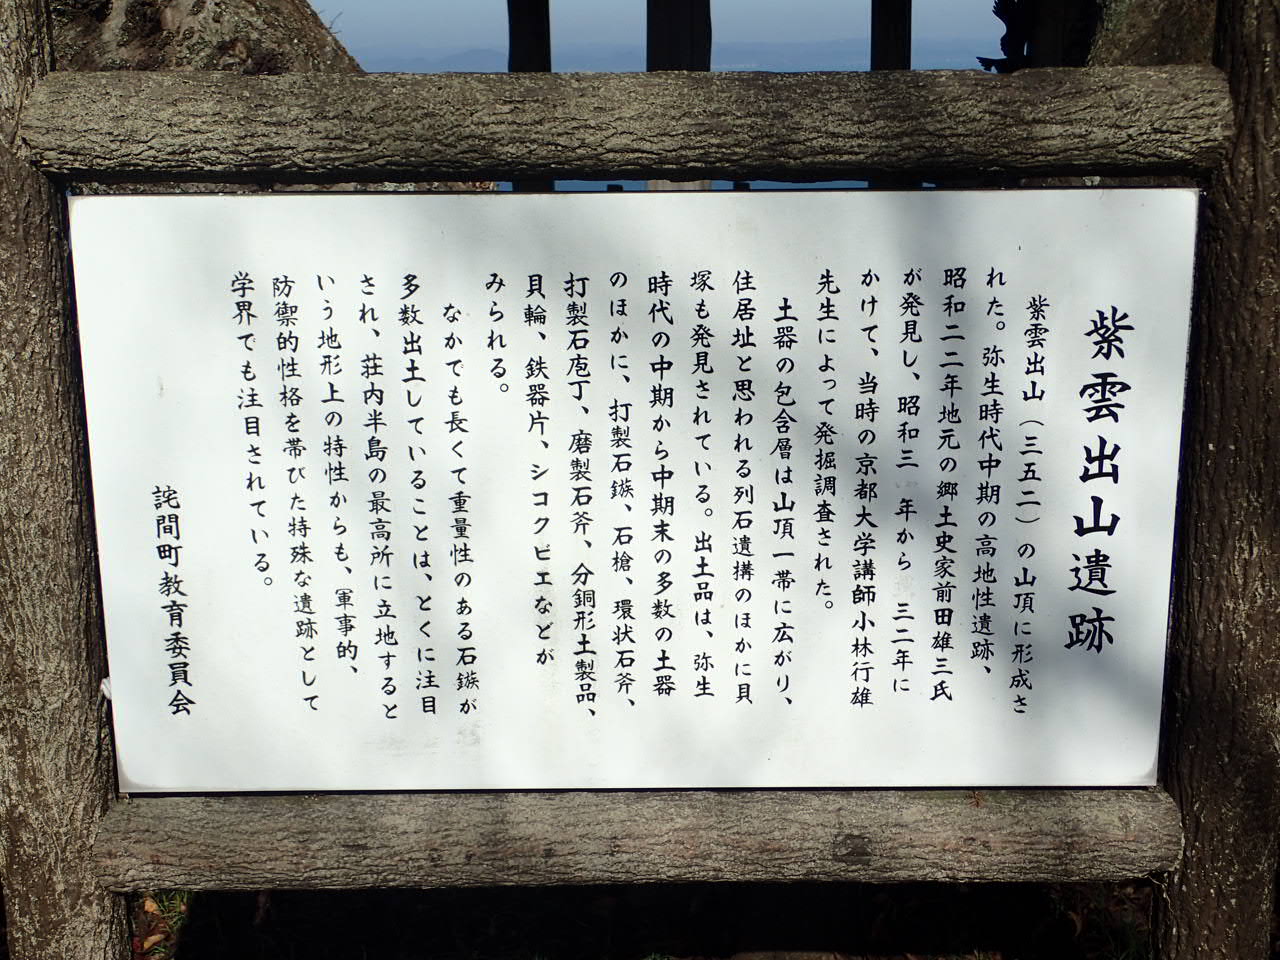 紫雲出山遺跡
紫雲出山（三五二）の山頂に形成さ
れた。弥生時代中期の高地性遺跡、
昭和二二年地元の郷土史家前田雄三氏
が発見し、昭和三　年から　三二年に
かけて、当時の京都大学講師小林行雄
先生によって発掘調査された。
土器の包含層は山頂一帯に広がり、
住居址と思われる列石遺構のほかに貝
塚も発見されている。出土品は、弥生
時代の中期から中期末の多数の土器
のほかに、打製石鏃、石槍、環状石斧、
打製石庖丁、磨製石斧、分銅形土製品、
貝輪、鉄器片、シコクビエなどが
みられる。
なかでも長くて重量性のある石鏃が
多数出土していることは、とくに注目
され、荘内半島の最高所に立地すると
いう地形上の特性からも、軍事的、
防禦的性格を帯びた特殊な遺跡として
学界でも注目されている。
詫間町教育委員会